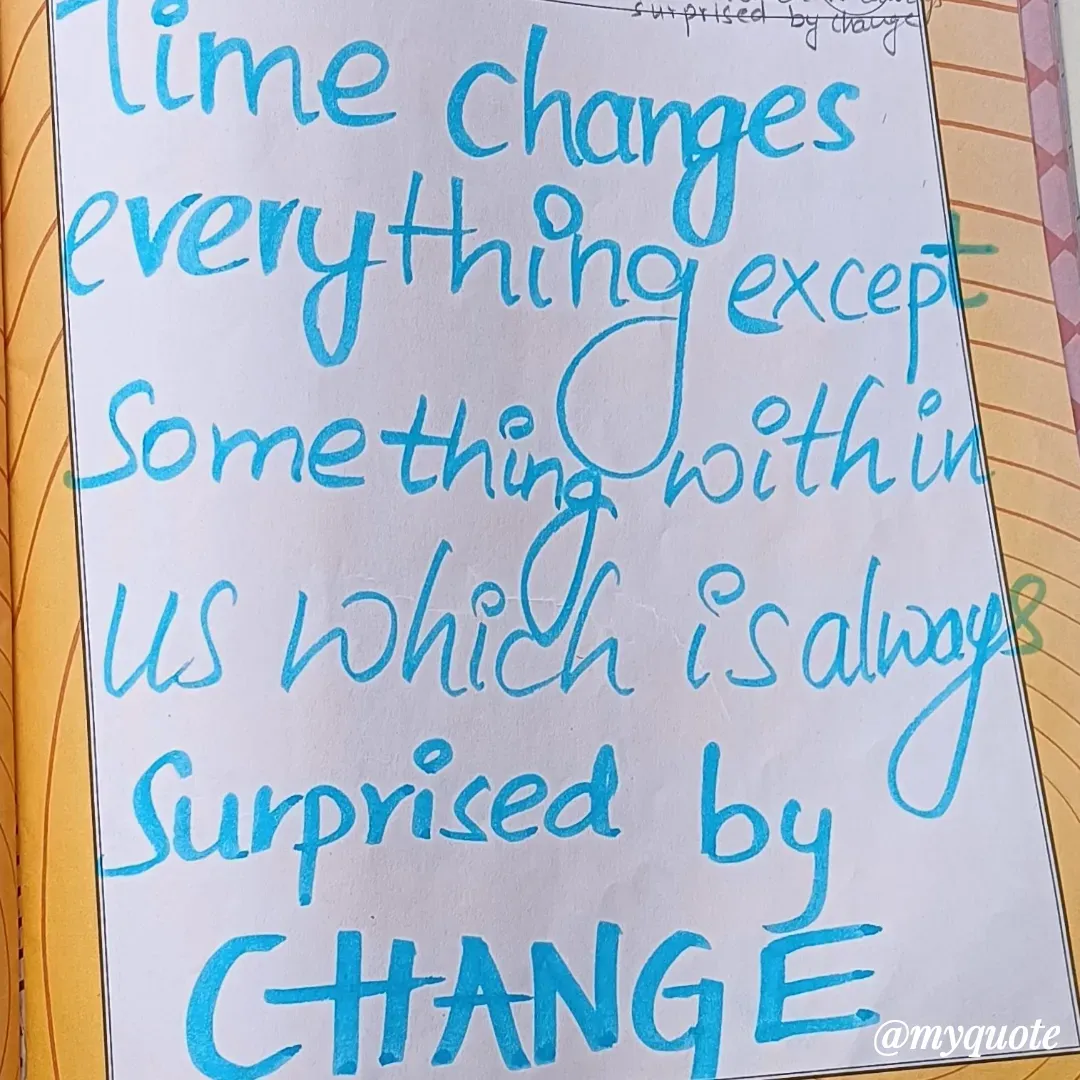 surprised by change
Time changes
everything except
something within
us which is always
surprised by
CHANGE
@myquote